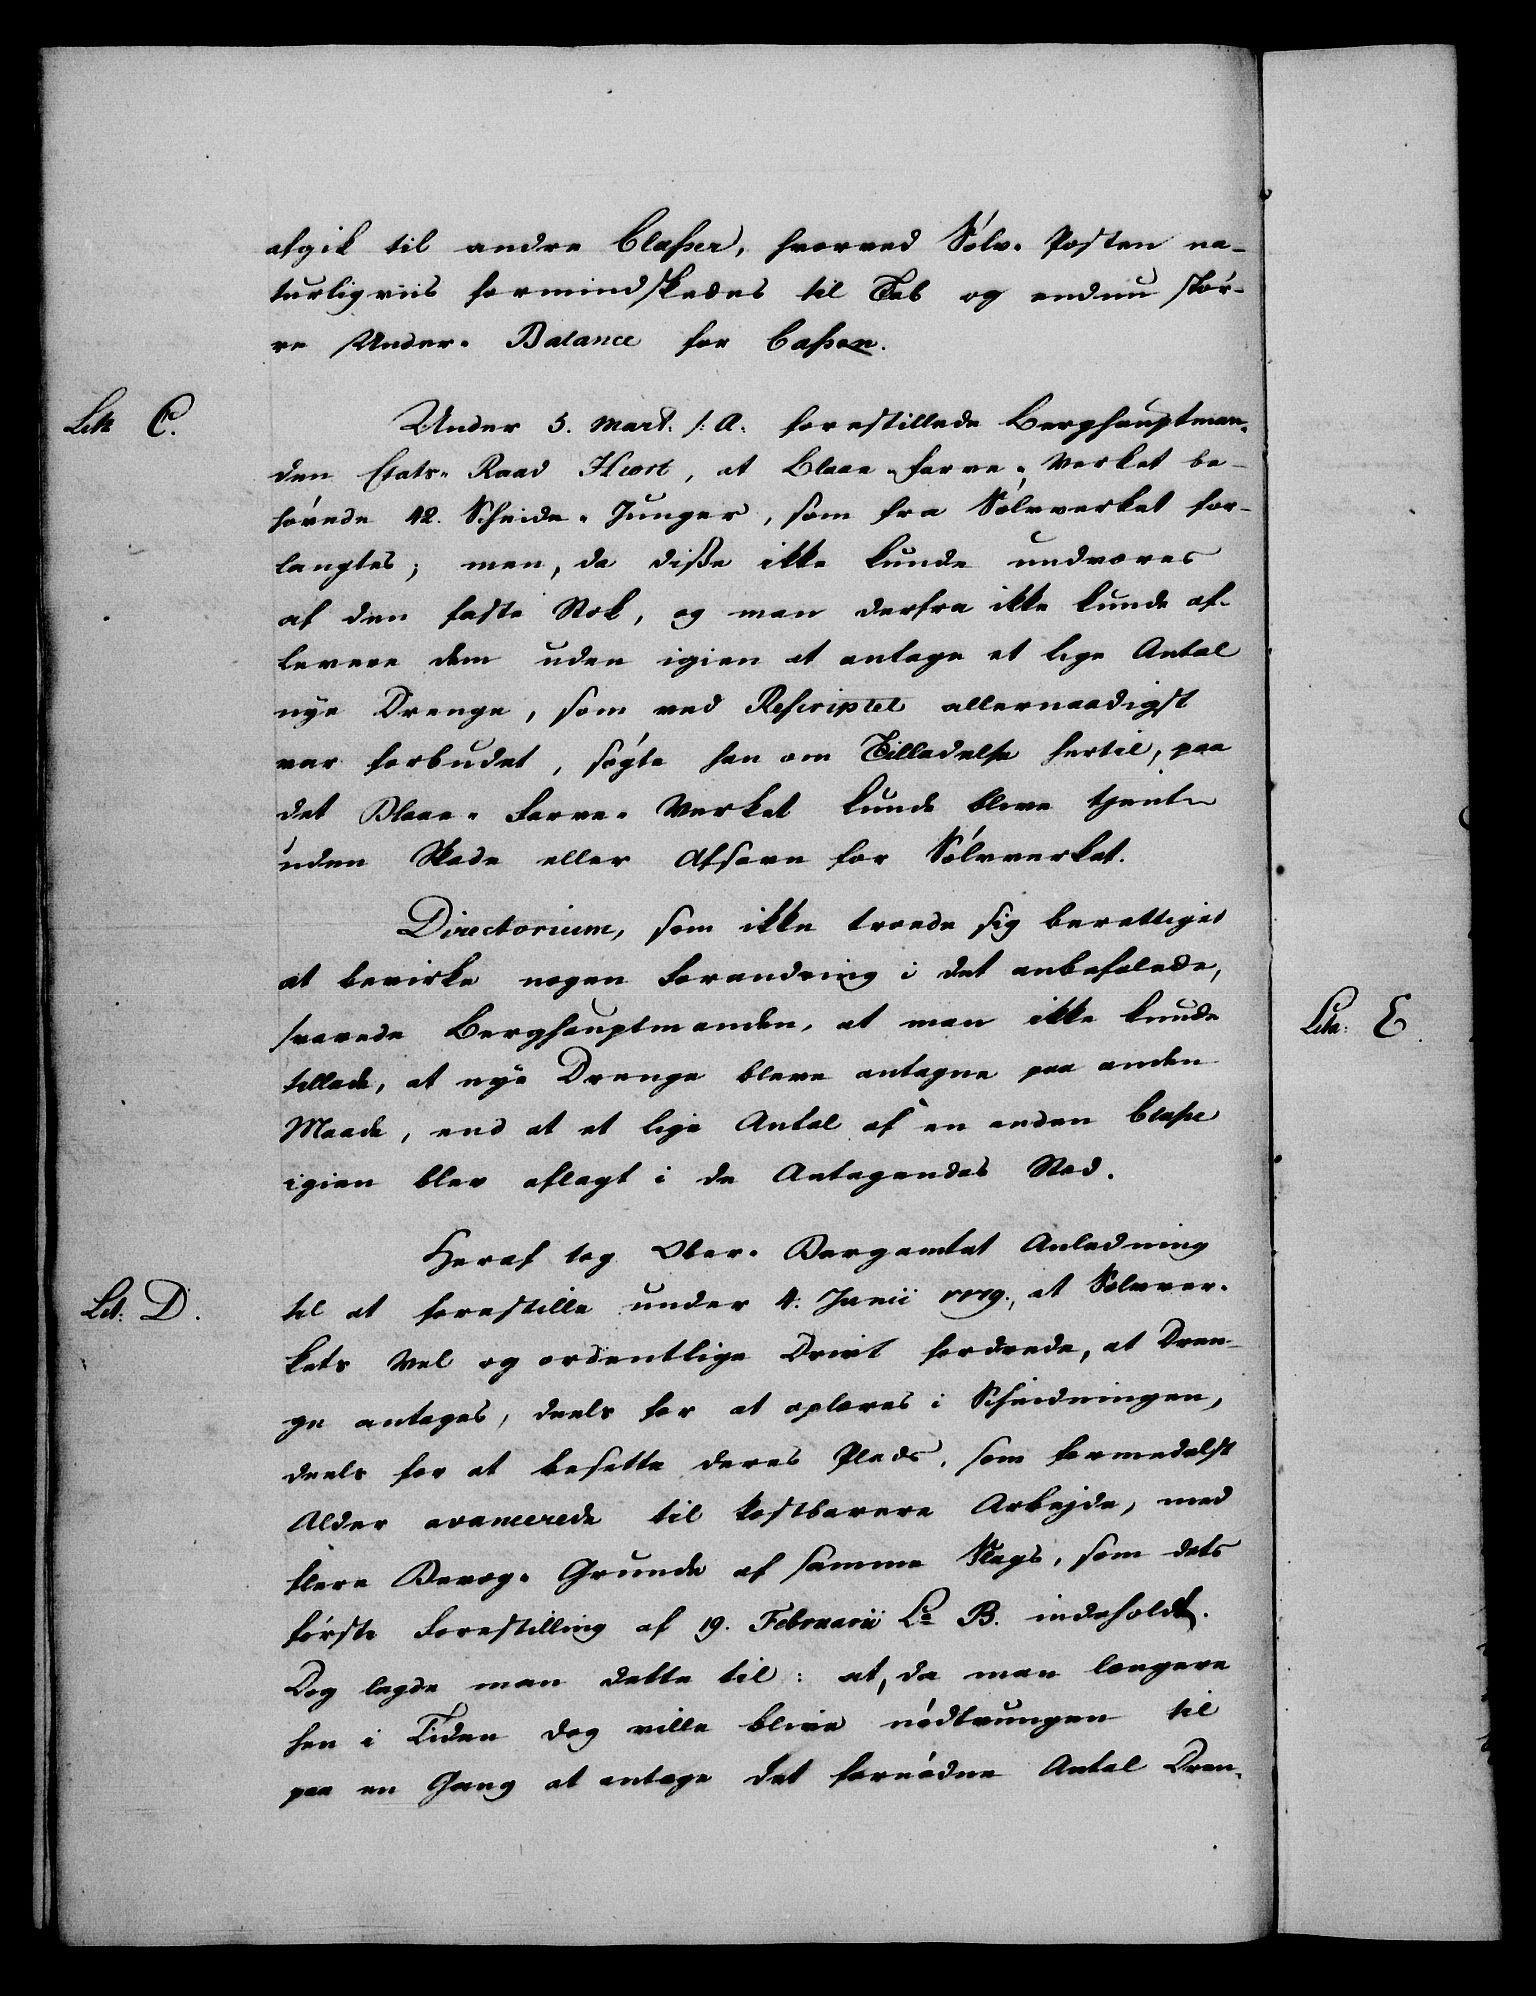 afgik til andre Classer, hvorved Sølv-Posten na-
turligviis formindskedes til Tab og endnu stør-
re Under-Balance for Cassen.
Litr C.
Under 5. Mart. s: A: forestillede Berghauptman-
den Etats-Raad Hiort, at Blaae-Farve-Verket be-
høvede 42. Scheide-Junger, som fra Sølvverket for-
langtes; men, da disse ikke kunde undværes
af den faste Stok, og man derfra ikke kunde af-
levere dem uden igien at antage et lige Antal
nye Drenge, som ved Rescriptet allernaadigst
var forbudet, søgte han om Tilladelse hertil, paa
det Blaae-Farve-Verket kunde blive tjent
uden Skade eller Afsavn for Sølvverket.
Directorium, som ikke troede sig berettiget
at bevirke nogen Forandring i det anbefalede,
svarede Berghauptmanden, at man ikke kunde
tillade, at nye Drenge bleve antagne paa anden
Maade, end at et lige Antal af en anden Classe
igien blev aflagt i de Antagendes Sted.
Heraf tog Ober-Bergamtet Anledning
Lit: D.
til at forestille under 4. Junii, at Sølvver-
kets Vel og ordentlige Drivt fordrede, at Dren-
ge antages, deels for at oplæres i Scheidningen,
deels for at besætte deres Plads, som formedelst
Alder avancerede til kostbarere Arbejde, med
flere Bevæg-Grunde af samme Slags, som dets
første Forestilling af 19. Februarii La B. indeholdt.
Dog lagde man dette til: at, da man længere
hen i Tiden dog ville blive nødtvungen til
paa en Gang at antage det fornødne Antal Dren-
Litr: E.